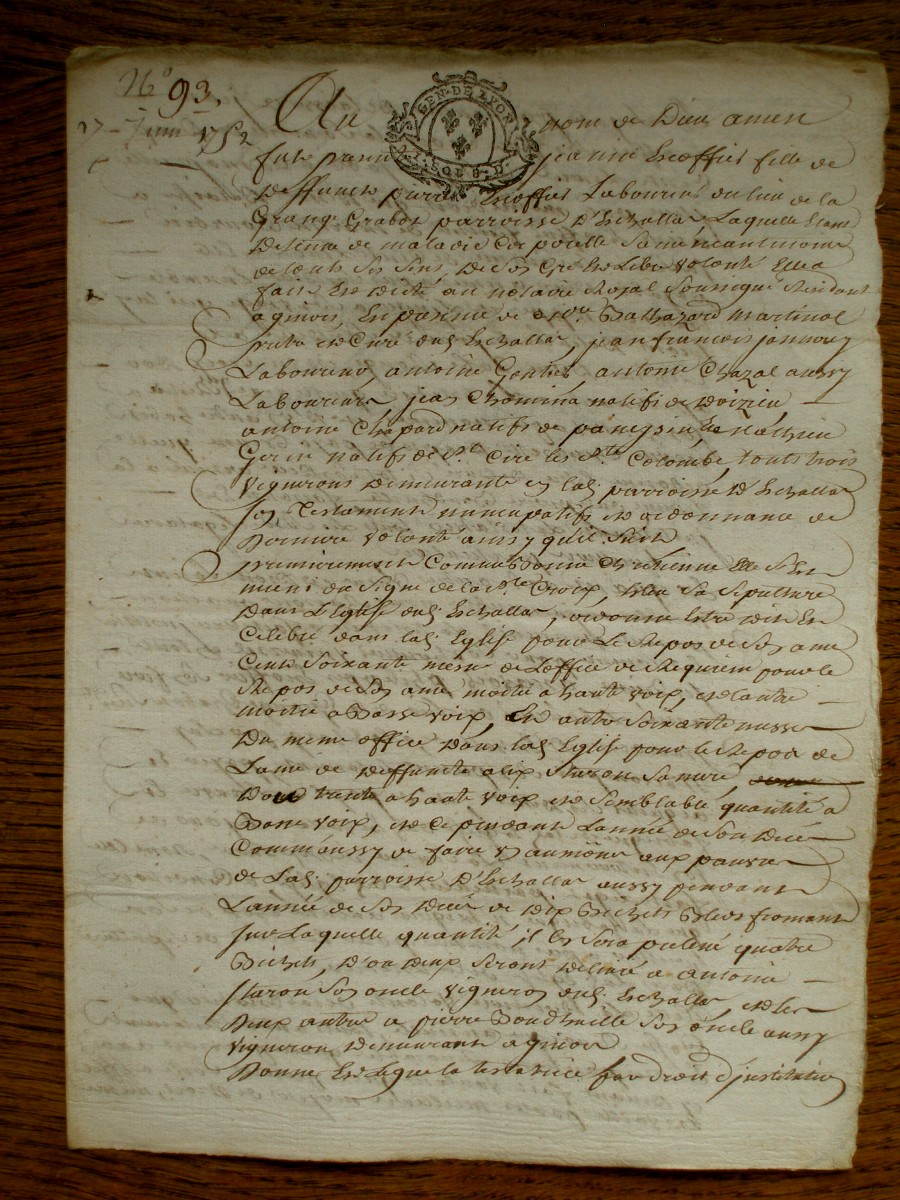 N° 93.
27 Juin 1752
GEN. DE LYON
Au nom de Dieu amen
fut jeanne Escoffier fille de
deffunct pierre Escoffier Laboureur du lieu de la
Grang. Grabot parroisse D'Echallas, Laquelle Etant
Detenue de maladie Corporelle Saine neantmoins
de touts Ses Sens, De Son Gré Et Libre Volonté Elle a
fait Et dicté au Notaire Royal Soussigné Residant
a givors, En presence de Balthazard Martinol
ptre et Curé dud. Echallas, jean françois
Laboureur, antoine antoine Chazal aussy
Laboureur jean natifs de Doizieu
antoine Chapard natifs de Mathieu
natifs de St. Cire les Ste. Colombe, touts trois
Vignerons Demeurants en lad. parroisse D'Echallas
Son Testament nuncupatifs et ordonnance de
Derniere Volonté aussy qu'il Suit
premierement Comme Bonne Chrétienne Elle S'est
munie du Signe de la Ste. Croix, Eleu Sa Sepulture
Dans L'Eglise dud. Echallas, ordonne Estre Dit Et
Celebré dans lad. Eglise pour Le Repos de Son ame
Cent Soixante messe de L'office de Requiem pour le
Repos de Son ame moitié a haute voix, et l'autre
moitié a Basse voix, Et autre Soixante messe
Du meme office Dans lad. Eglise pour le Repos de
Lame de Deffuncte alix Staron Sa mere,
Dont trente a haute voix et Semblable quantité a
Basse voix, et ce pendant L'année de Son Decés
Comm'aussy de faire L'aumône aux pauvres
de Lad. parroisse D'Echallas aussy pendant
L'année de Son Decés de Dix Bichets Bled froment
Sur Laquelle quantité il En Sera prelevé quatre
Bichets, D'on Deux Seront Delivré a Antoine
Staron Son oncle Vigneron dud. Echallas, et les
Deux autre a pierre Son oncle aussy
Vigneron Demeurant a givors
Donne Et Legue la testatrice par droit d'institution